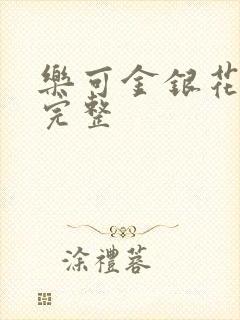 樂可金銀花
完整
涂禮蓉